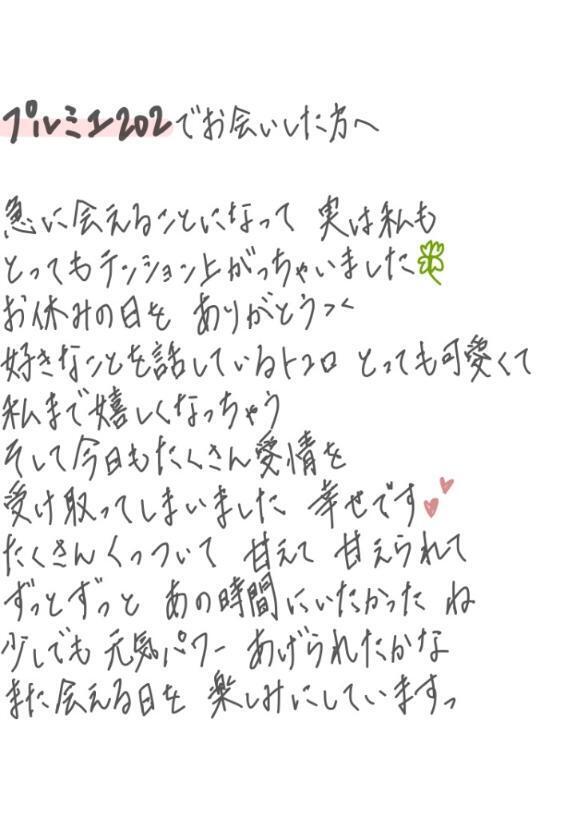 プルミエ202でお会いした方へ
急に会えることになって 実は私も
とってもテンション上がっちゃいました
お休みの日を ありがとうっ
好きなことを話しているトコロ とっても可愛くて
私まで嬉しくなっちゃう
そして今日もたくさん愛情を
受け取ってしまいました 幸せです
たくさんくっついて 甘えて 甘えられて
ずっとずっと あの時間にいたかった ね
少しでも 元気パワー あげられたかな
また会える日を 楽しみにしていますっ